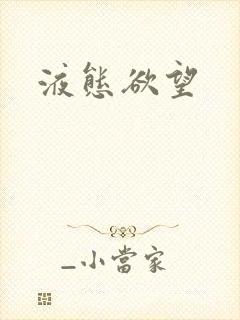 液態欲望
_小當家